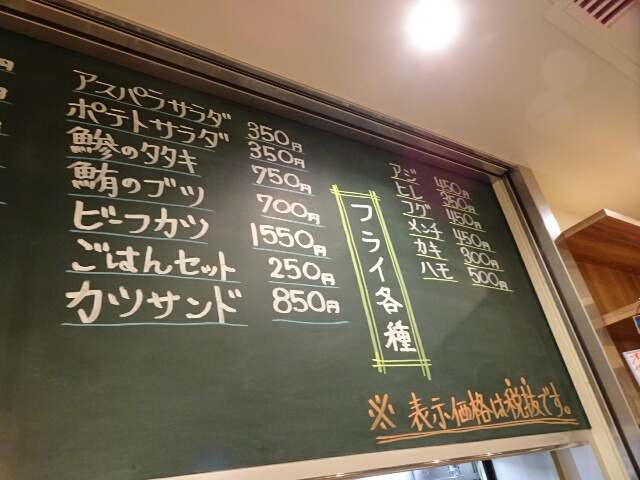 アスパラサラダ 350円
ポテトサラダ 350円
鯵のタタキ 750円
鮪のブツ 700円
ビーフカツ 1550円
ごはんセット 250円
カツサンド 850円
フライ各種
アジ 450円
ヒレ 350円
フグ 450円
メンチ 450円
カキ 300円
ハモ 500円
※表示価格は税抜です。